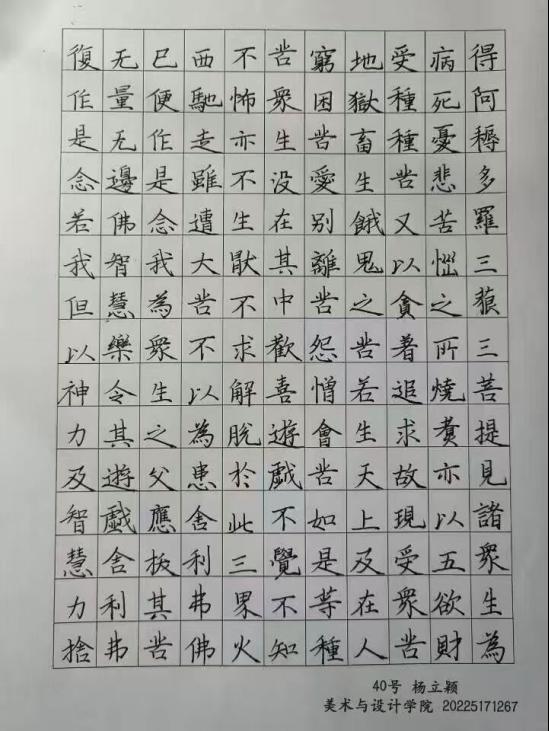 得阿耨多羅三藐三菩提見諸衆生為
病死憂悲苦惱之所燒煮亦以五欲財
受種種苦又以貪著追求故現受衆苦
地獄畜生餓鬼之苦若生天上及在人
窮困苦愛別離苦怨憎會苦如是等種
苦衆生没在其中歡喜遊戲不覺不知
不怖亦不生厭不求解脫於此三界火
西馳走雖遭大苦不以為患舍利弗佛
已便作是念我為衆生之父應拔其苦
无量无邊佛智慧樂令其遊戲舍利弗
復作是念若我但以神力及智慧力捨
40号 杨立颖
美术与设计学院 20225171267